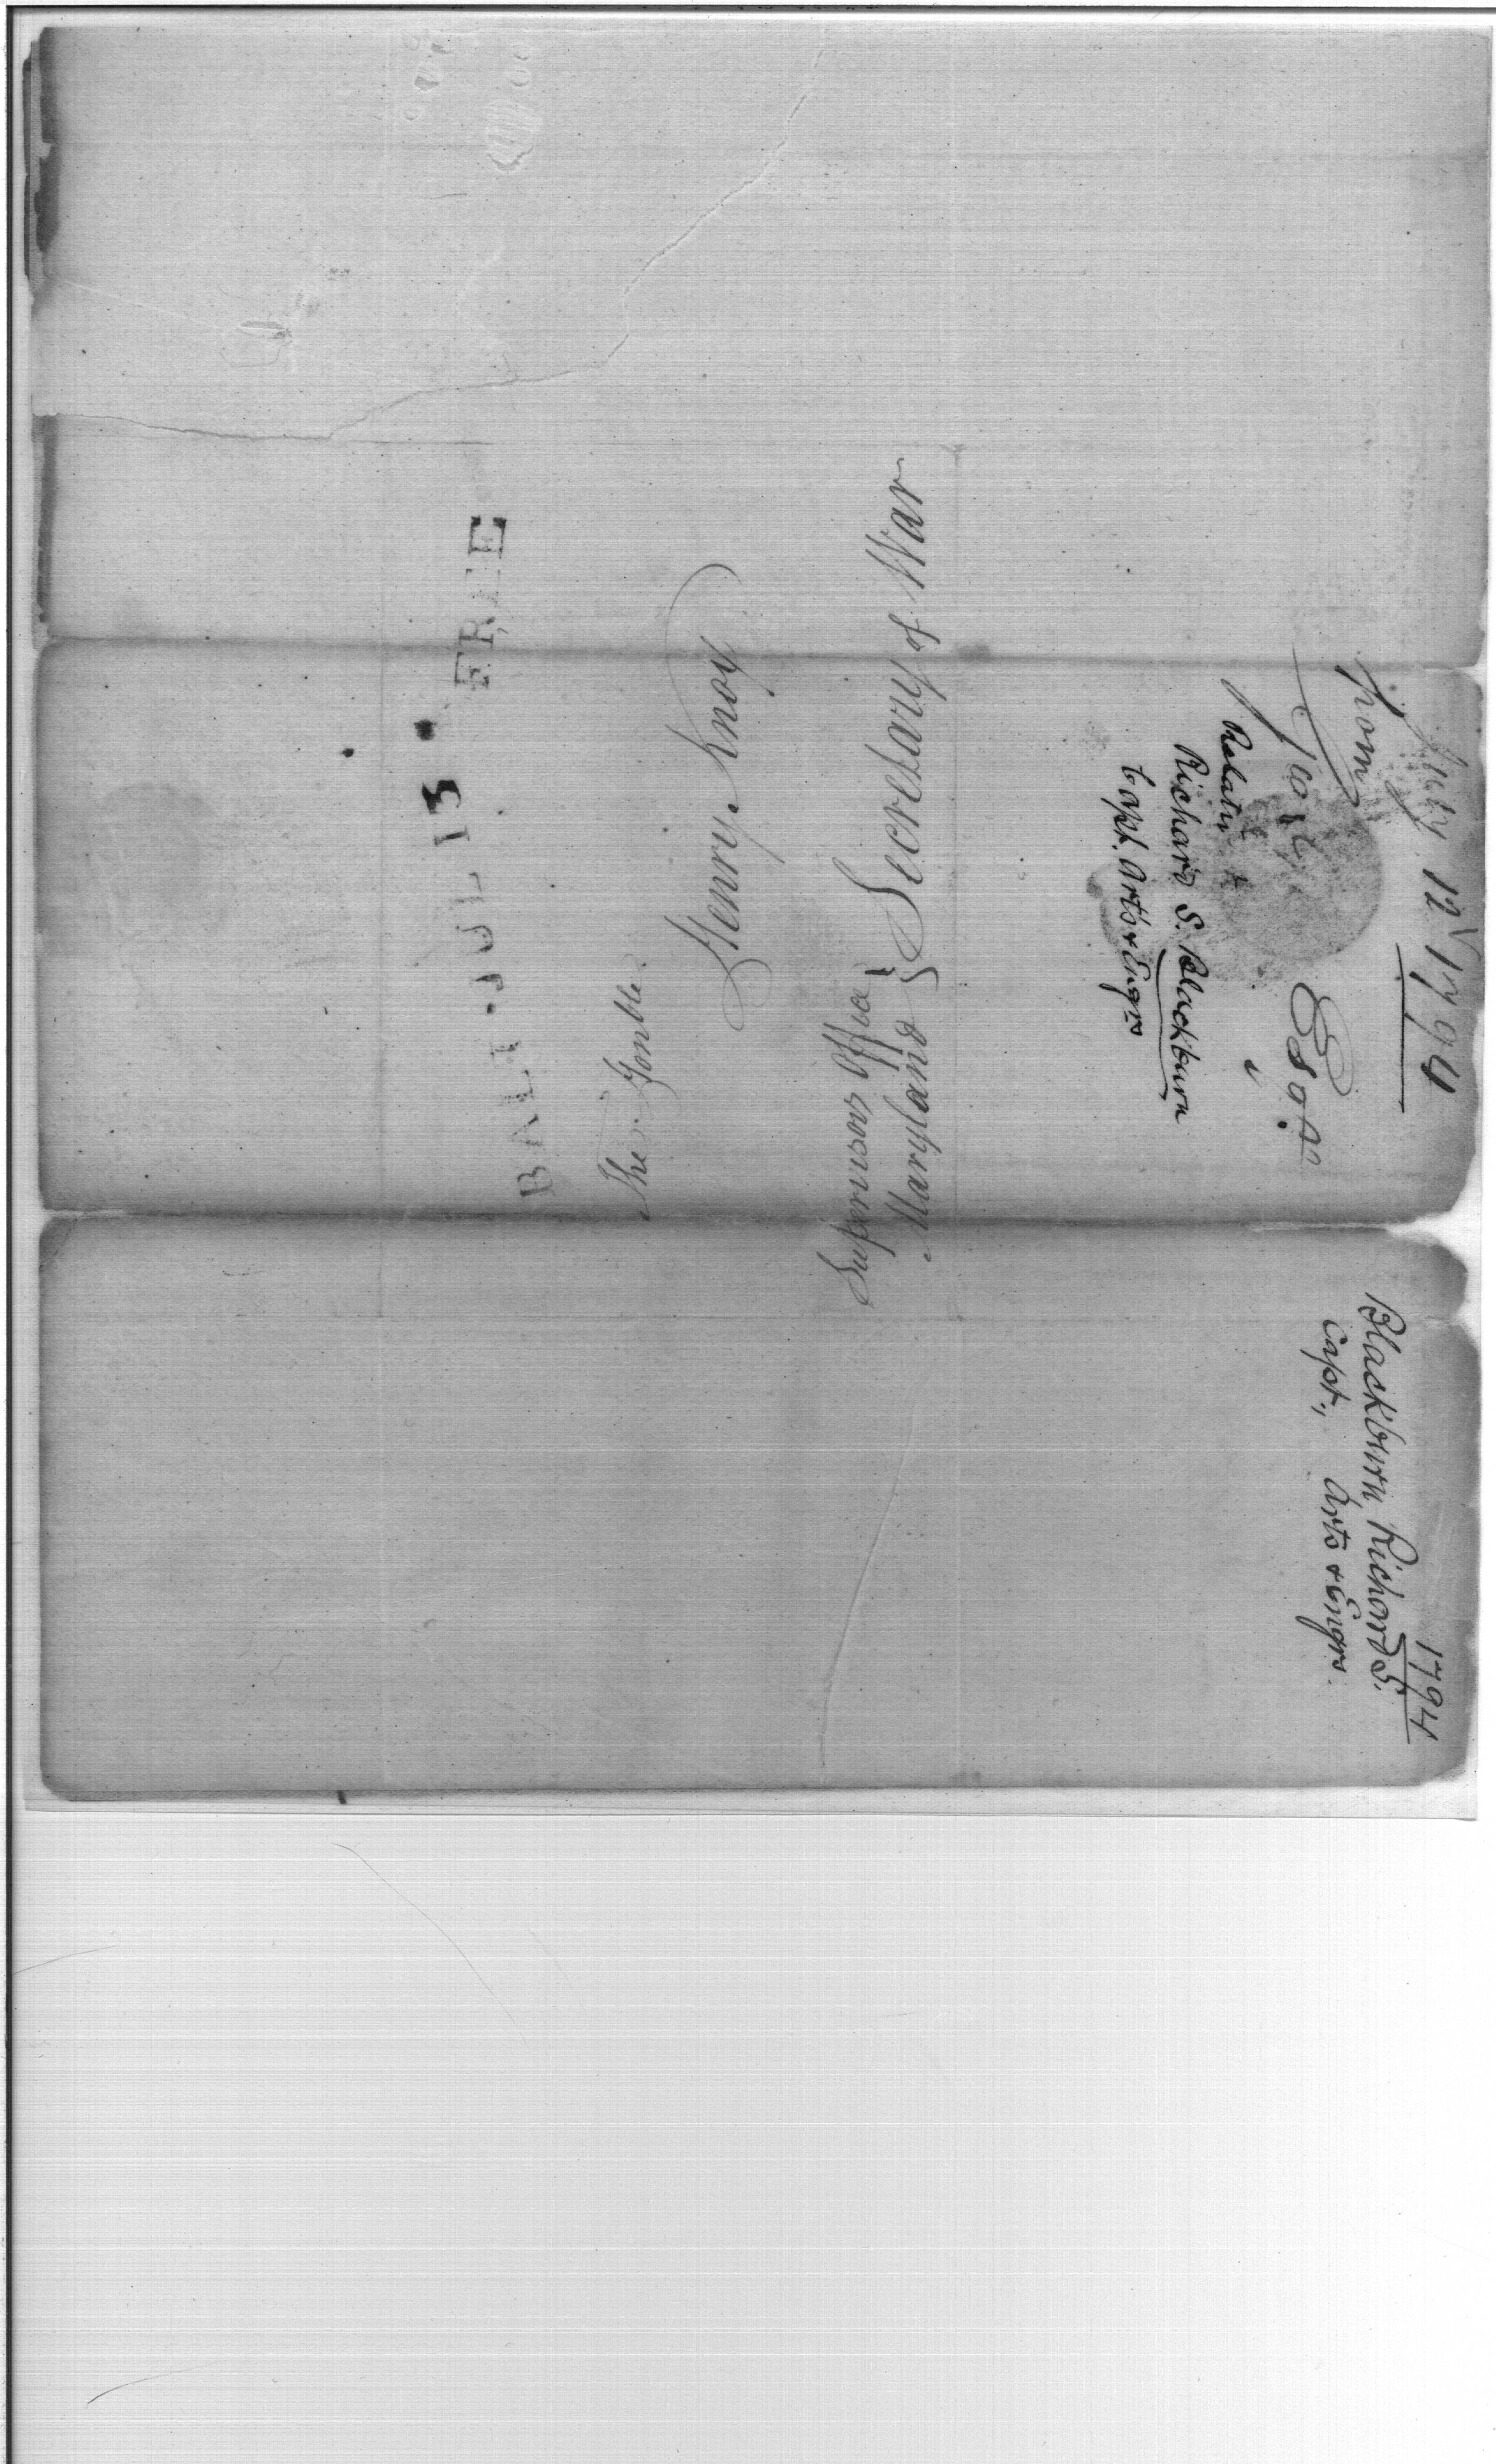 BALT. JUL 13 FREE
The Honble
Henry Knox
Secretary of War
Supervisors Office
Maryland
July 12 1794
from
Esqr
Relative to
Richard S. Blackburn
Capt. Arts & Engrs
1794
Blackburn, Richard S.
Capt., Arts & Engrs.